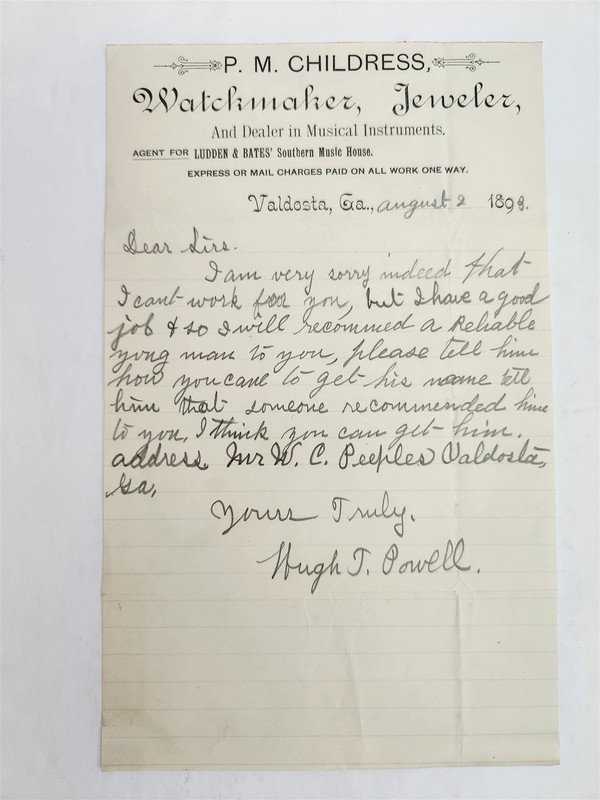 P. M. CHILDRESS,
Watchmaker, Jeweler,
And Dealer in Musical Instruments.
AGENT FOR LUDDEN & BATES' Southern Music House.
EXPRESS OR MAIL CHARGES PAID ON ALL WORK ONE WAY.
Valdosta, Ga., august 2 1898.
Dear Sirs.
I am very sorry indeed that
I cant work for you, but I have a good
job & so I will recommed a Reliable
yong man to you, please tell him
how you cane to get his name tell
him that someone recommended him
to you, I think you can get him.
address Mr W. C. Peeples Valdosta,
Ga,
Yours Truly.
Hugh T. Powell.